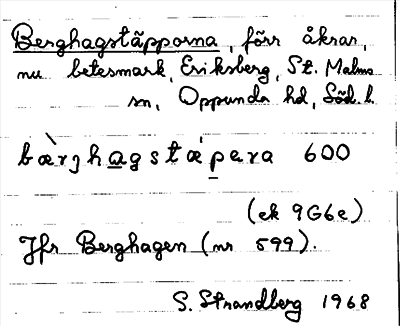 Berghagstäpporna, förr åkrar,
nu betesmark, Eriksberg, St. Malms
sn, Oppunda hd, Söd. l.
bæ̀rjhagstæ'pera 600
(ek 9G6e)
Jfr Berghagen (nr 599).
S. Strandberg 1968